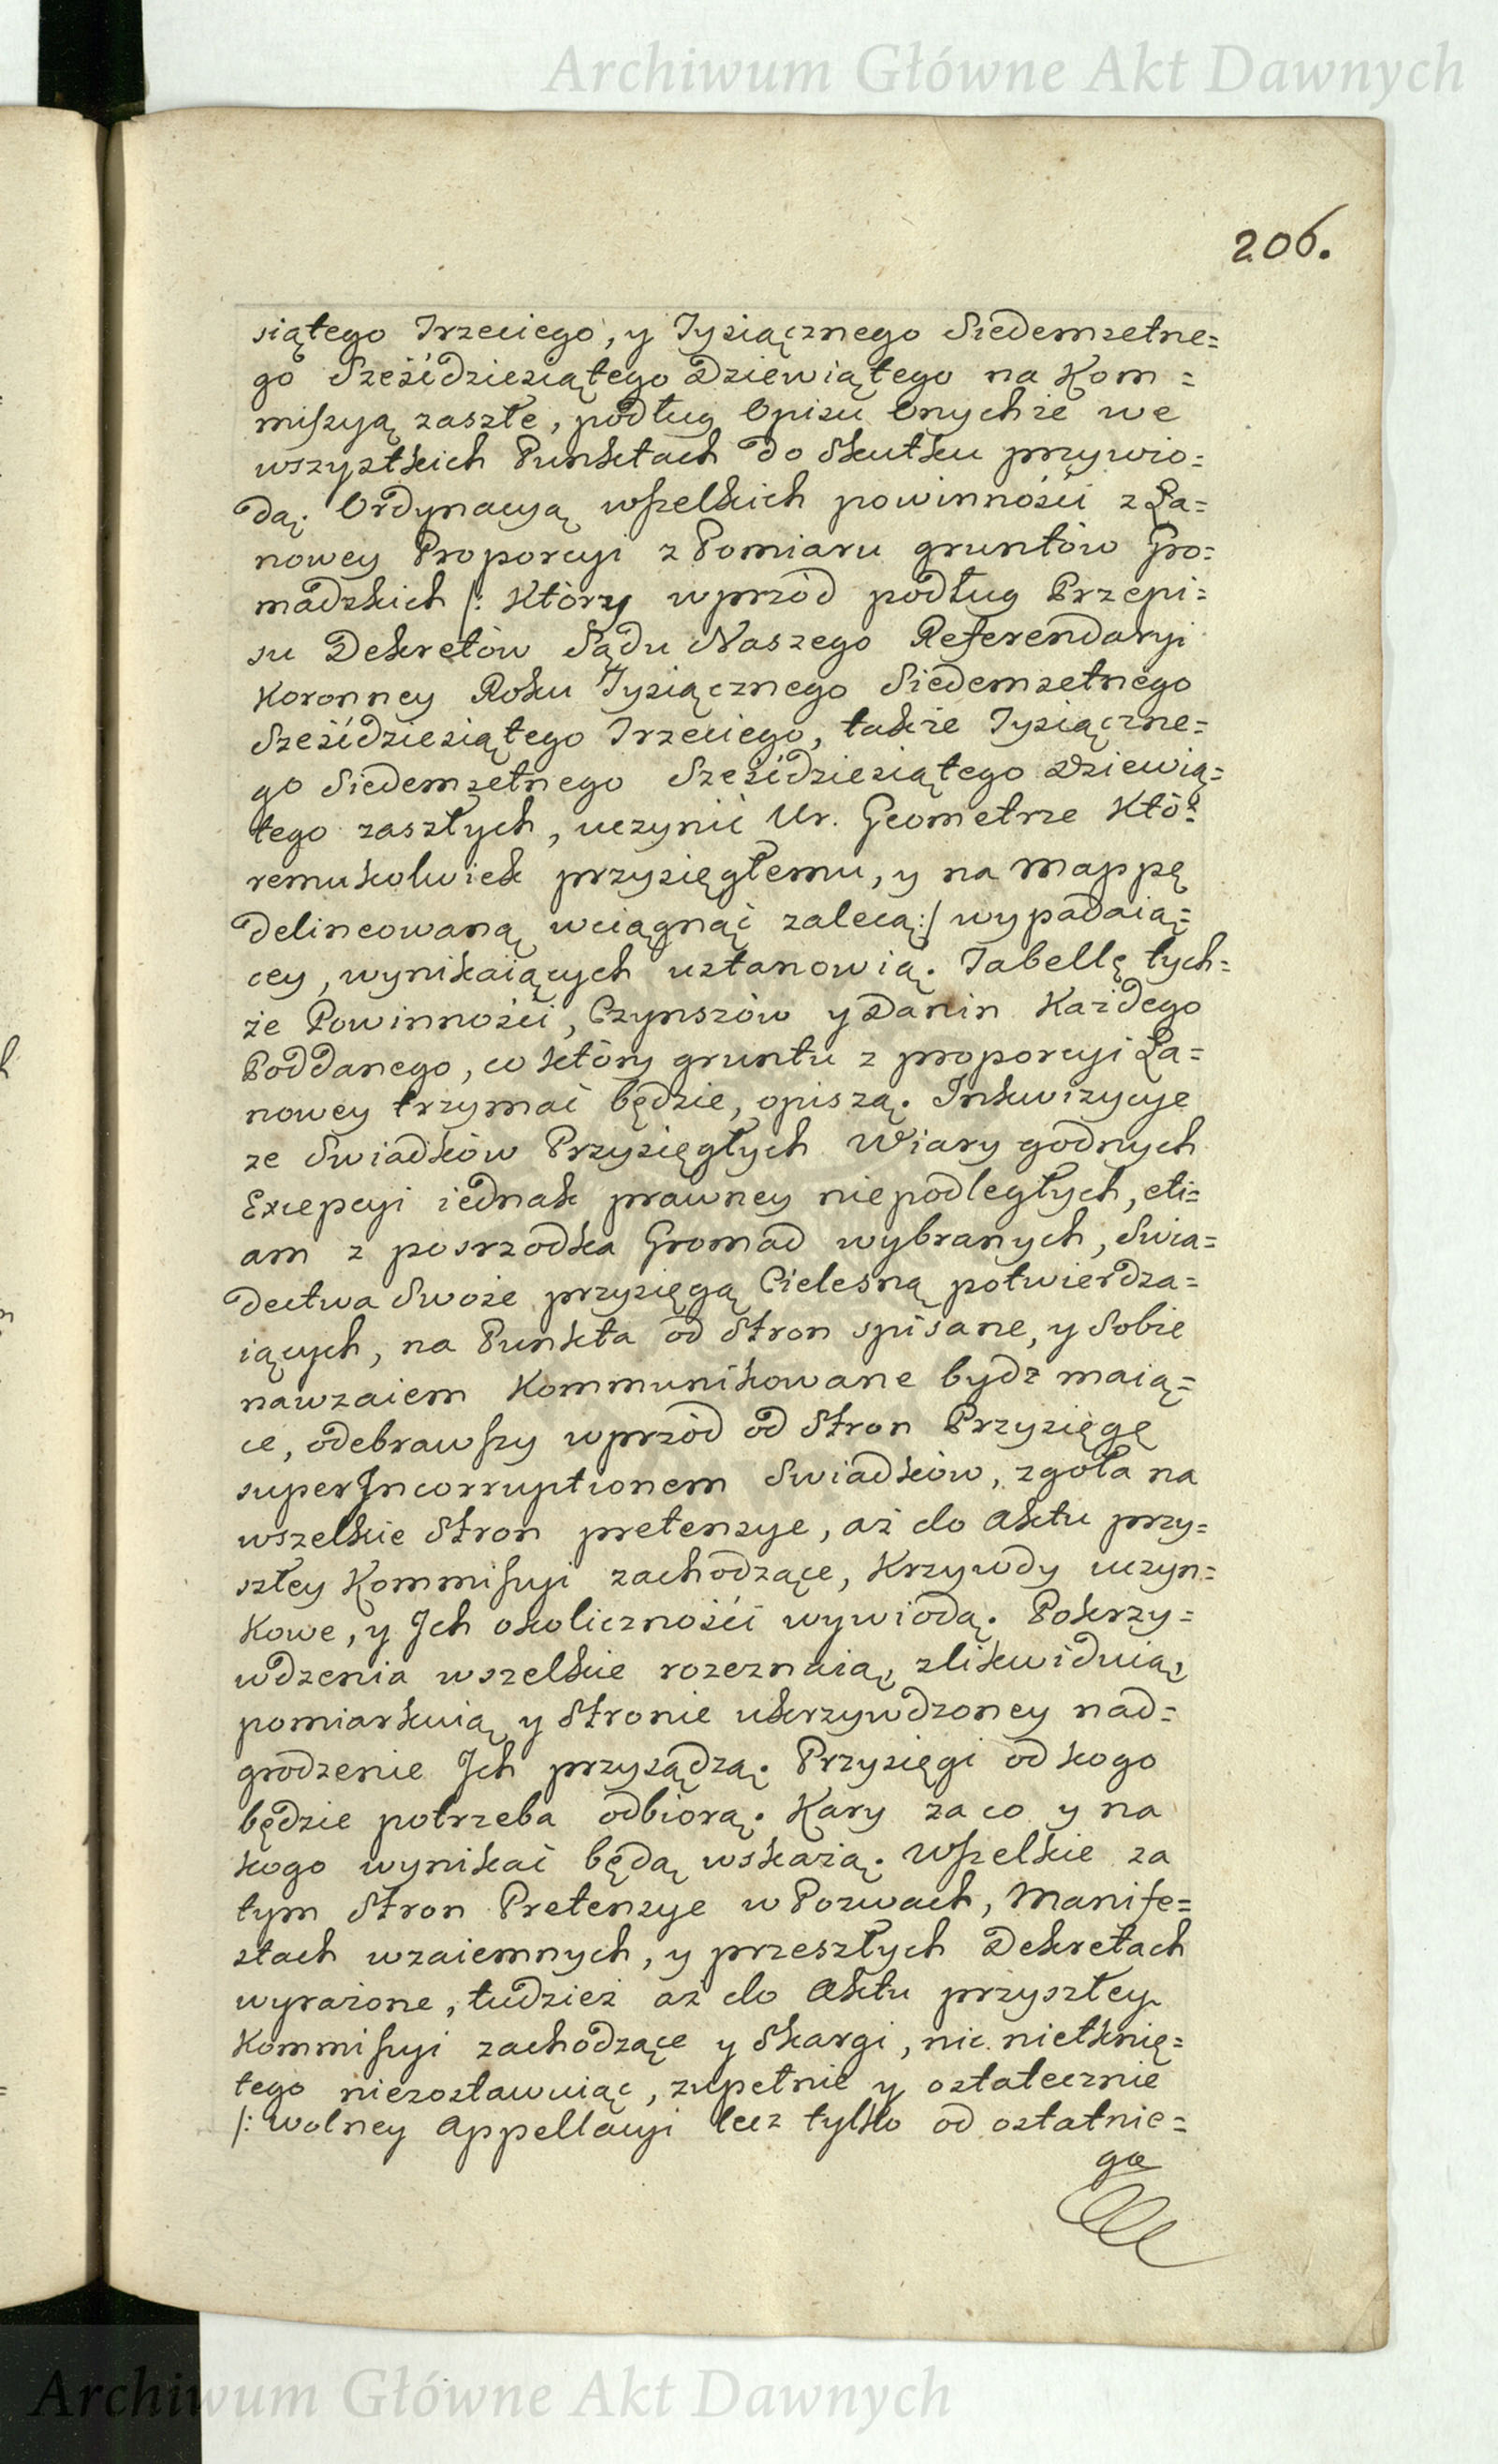 Archiwum Główne Akt Dawnych
206.
siątego Trzeciego, y Tysiącznego Siedemsetne=
go Sześćdziesiątego Dziewiątego na Kom=
miszyą zaszłe, podług Opisu Onychże we
wszystkich Punktach do Skutku przywio=
dą. Ordynacyą wszelkich powinności z Ła=
nowey Proporcyi z Pomiaru gruntów Gro=
madzkich /: Który wprzód podług Przepi=
su Dekretów Sądu Naszego Referendaryi
Koronney Roku Tysiącznego Siedemsetnego
Sześćdziesiątego Trzeciego, także Tysiączne=
go Siedemsetnego Sześćdziesiątego Dziewią=
tego zaszłych, uczynić Ur. Geometrze Któ=
remukolwiek przysięgłemu, y na Mappę
delineowaną wciągnąć zalecą :/ wypadaią=
cey, wynikaiących ustanowią. Tabellę tych=
że Powinności, Czynszów y Danin Każdego
Poddanego, co który gruntu z proporcyi Ła=
nowey trzymać będzie, opiszą. Inkwizycye
ze Swiadków Przysięgłych Wiary godnych
Excepcyi iednak prawney niepodległych, eti=
am z posrzodka Gromad wybranych, Swia=
dectwa Swoie przysięgą Cielesną potwierdza=
iących, na Punkta od Stron spisane, y Sobie
nawzaiem Kommunikowane bydź maią=
ce, odebrawszy wprzód od Stron Przysięgę
super Incorruptionem Swiadków, zgoła na
wszelkie Stron pretensye, aż do Aktu przy=
szłey Kommissyi zachodzące, Krzywdy uczyn=
kowe, y Ich okoliczności wywiodą. Pokrzy=
wdzenia wszelkie rozeznaią, zlikwiduią,
pomiarkuią y Stronie ukrzywdzoney nad=
grodzenie Ich przysądzą. Przysięgi od kogo
będzie potrzeba odbiorą. Kary za co y na
kogo wynikać będą wskażą. Wszelkie za
tym Stron Pretensye w Pozwach, Manife=
stach wzaiemnych, y przeszłych Dekretach
wyrażone, tudzież aż do Aktu przyszłey
Kommissyi zachodzące y Skargi, nic nietknię=
tego niezostawuiąc, zupełnie y ostatecznie
/: wolney Appellacyi lecz tylko od ostatnie=
go
Archiwum Główne Akt Dawnych